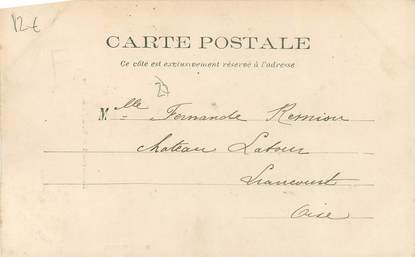 12 €
CARTE POSTALE
Ce côté est exclusivement réservé à l'adresse
27
Mlle Fernande Remiou
chateau Latour
Liancourt
Oise